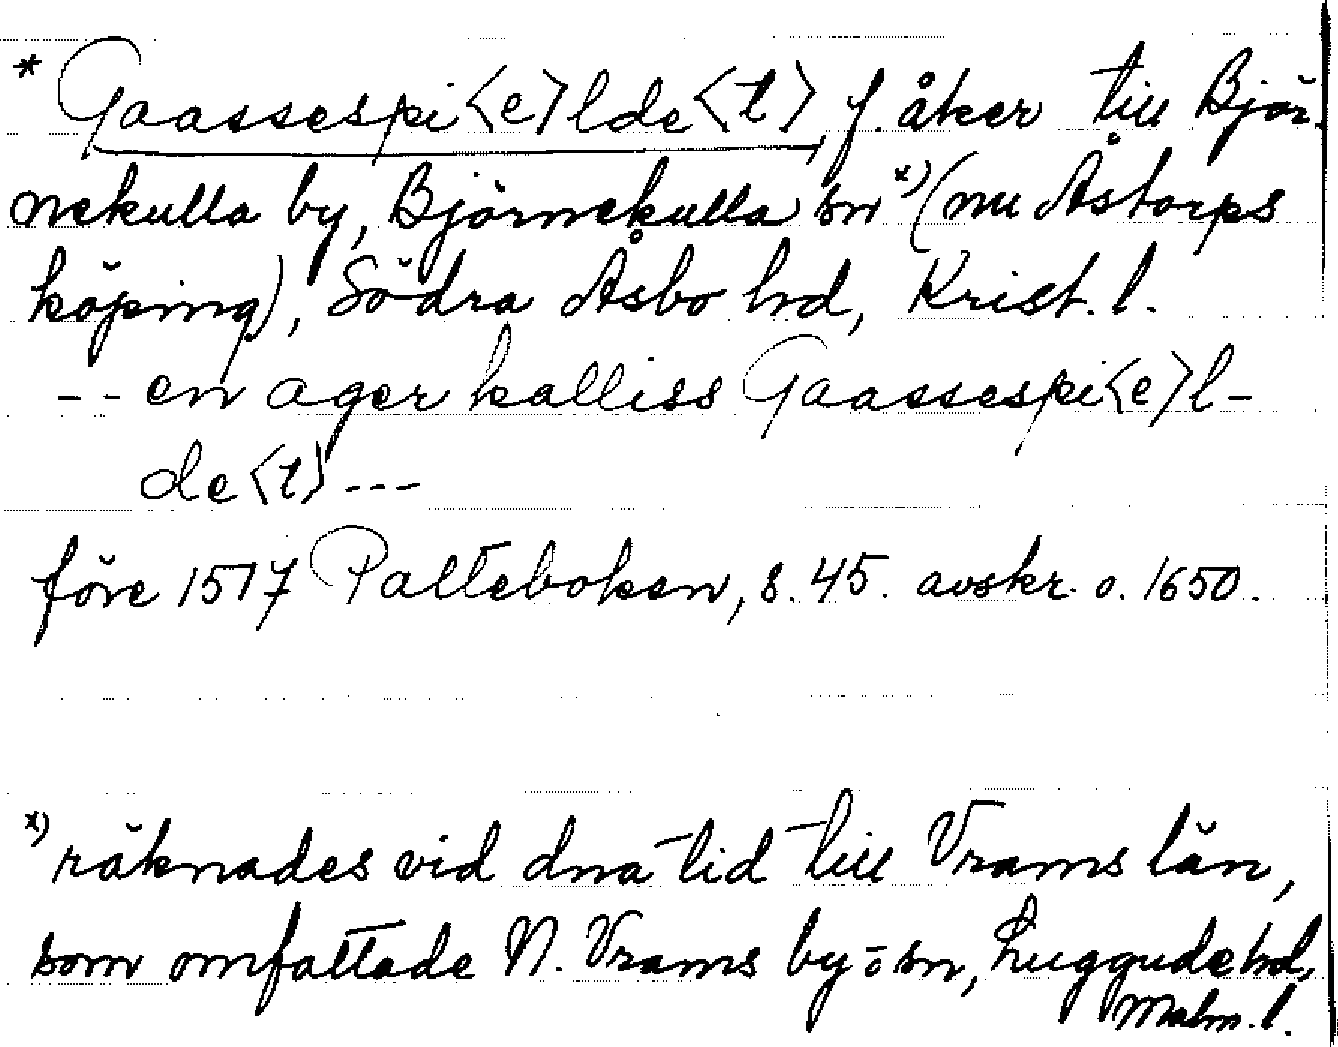 * Gaassespi<e>lde<t>, f. åker till Björ-
nekulla by, Björnekulla sn x) (nu Åstorps
köping), Södra Åsbo hd, Krist. l.
-- en ager kalliss Gaassespi<e>l-
de<t> ---
före 1517 Palteboken, s. 45. avskr. o. 1650.
x) räknades vid dna tid till Vrams län,
som omfattade N. Vrams by o sn, Luggude hd,
Malm. l.